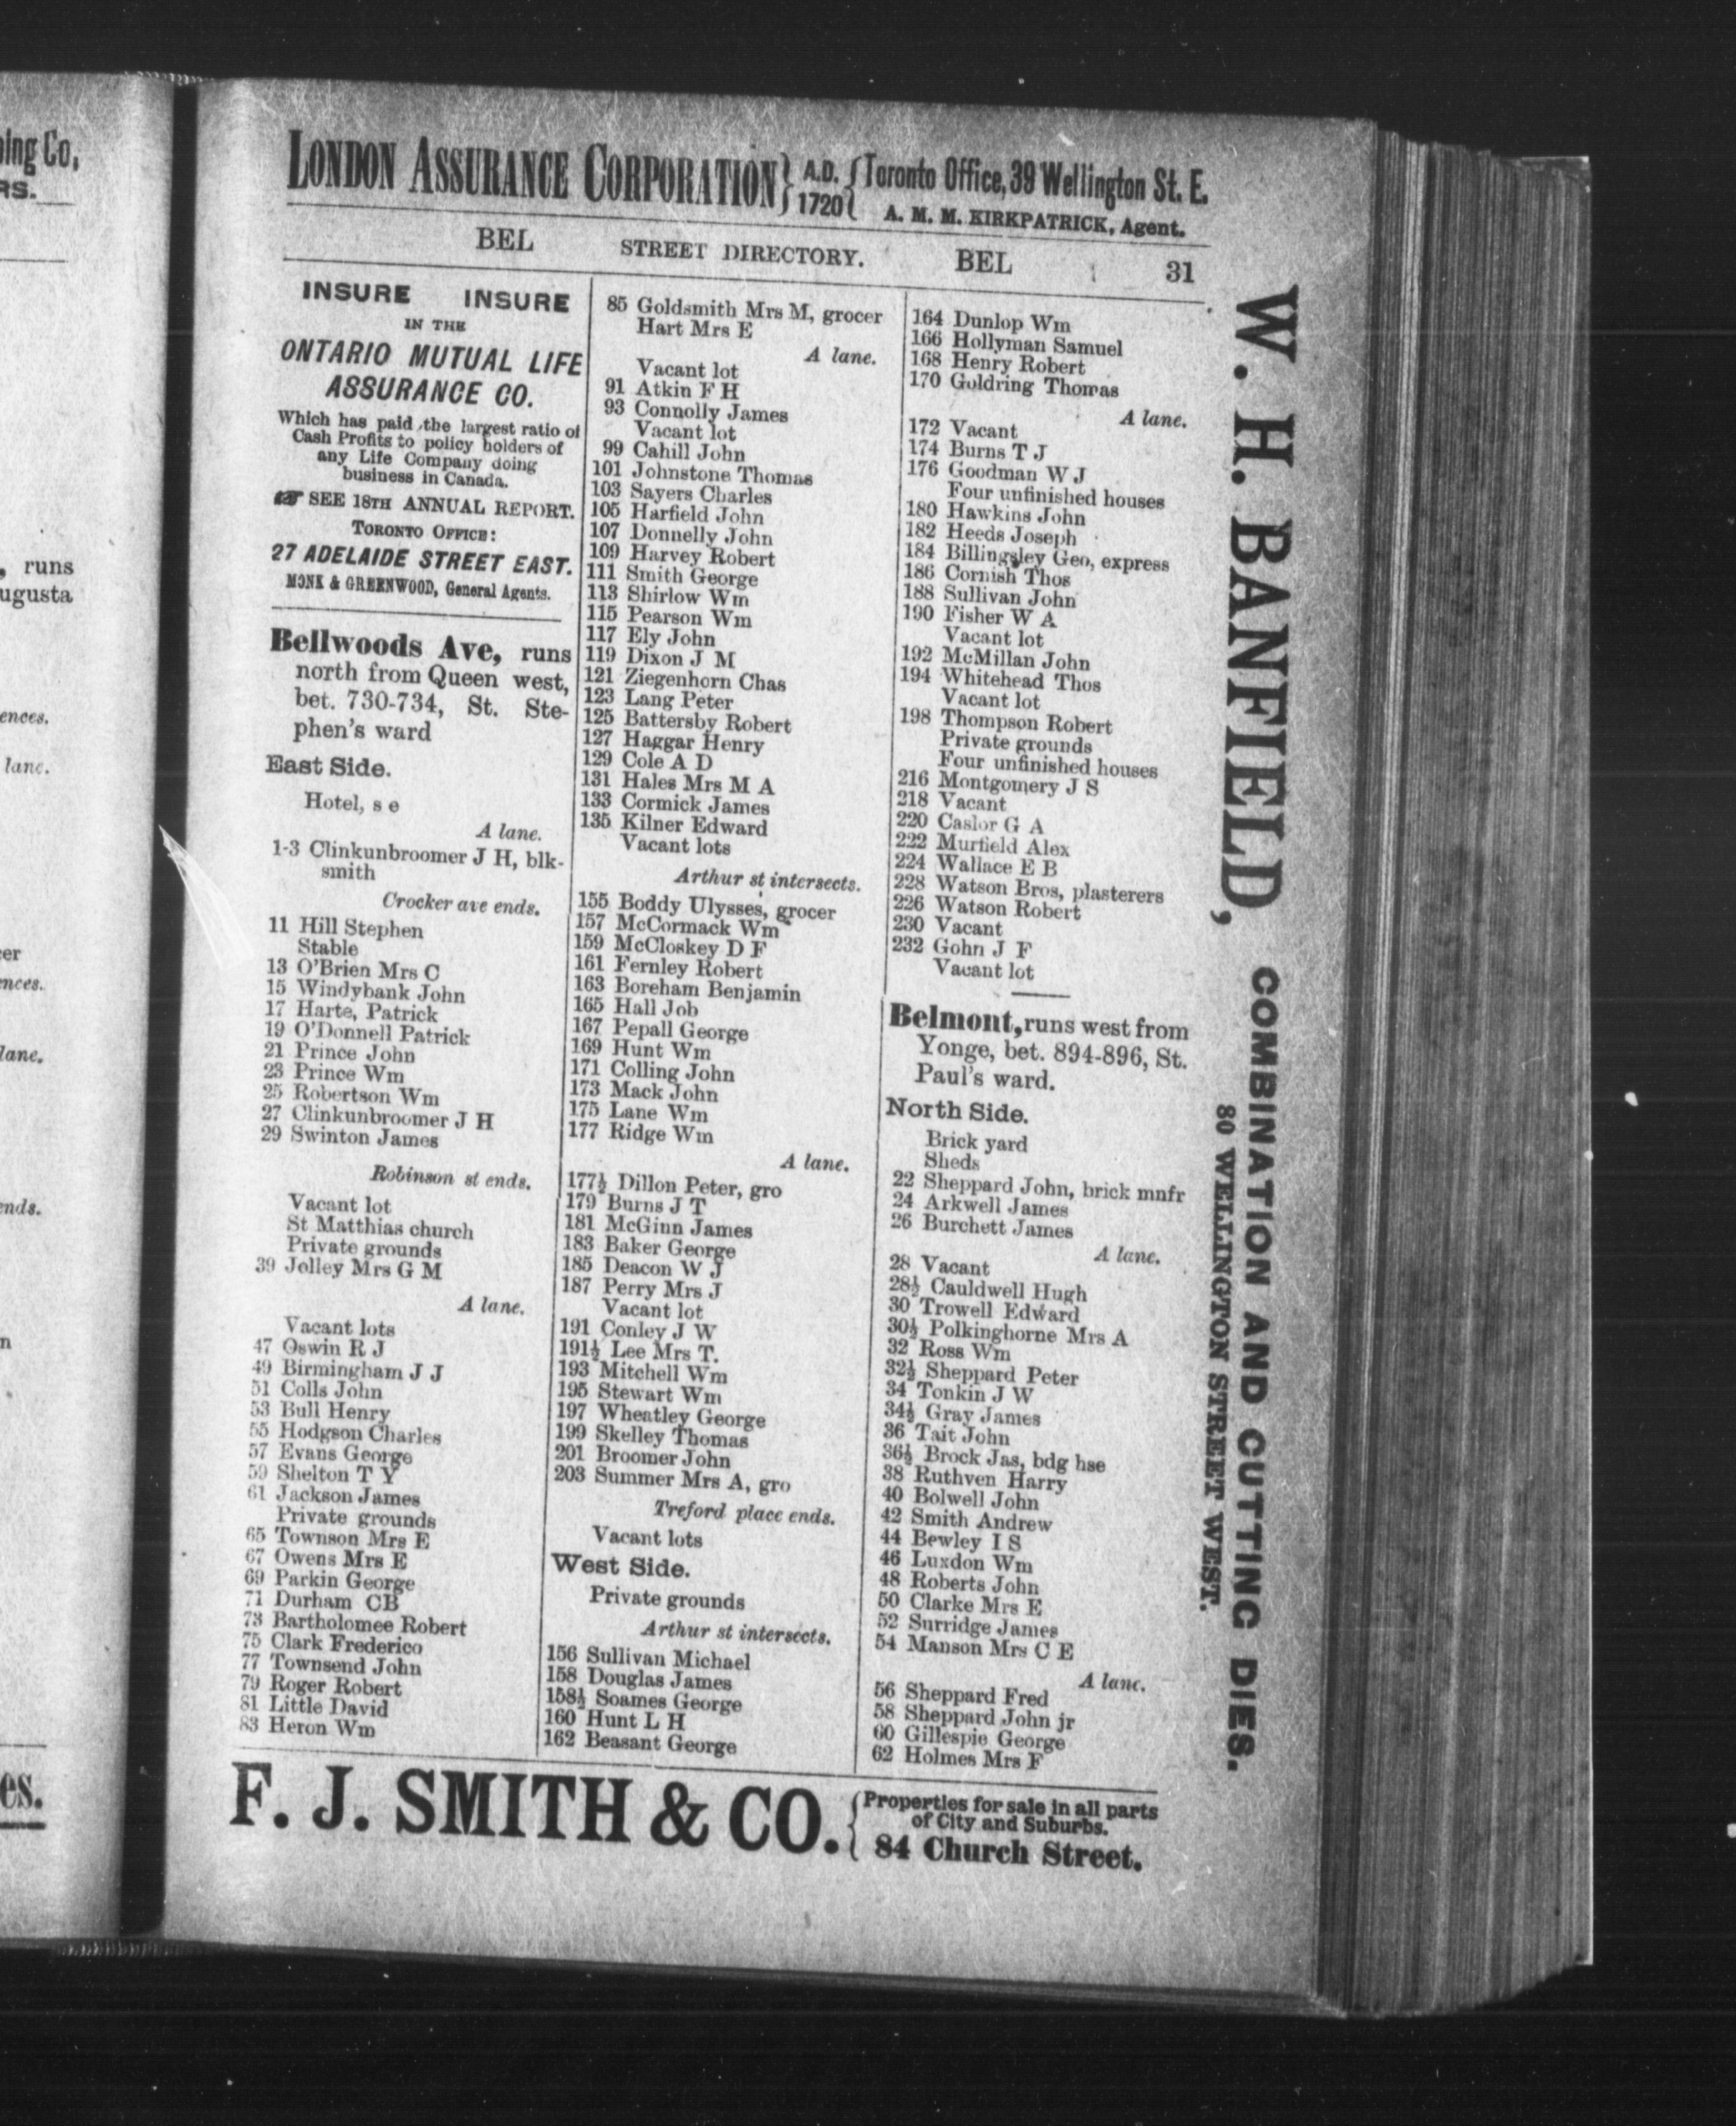 ing Co,
RS.
, runs
ugusta
ences.
lane.
er
nces.
lane.
ends.
n
es.
LONDON ASSURANCE CORPORATION} A.D. 1720 {Toronto Office, 39 Wellington St. E.
A. M. M. KIRKPATRICK, Agent.
BEL STREET DIRECTORY. BEL 31
INSURE INSURE
IN THE
ONTARIO MUTUAL LIFE
ASSURANCE CO.
Which has paid the largest ratio of
Cash Profits to policy holders of
any Life Company doing
business in Canada.
☞ SEE 18TH ANNUAL REPORT.
TORONTO OFFICE:
27 ADELAIDE STREET EAST.
MONK & GREENWOOD, General Agents.
Bellwoods Ave, runs
north from Queen west,
bet. 730-734, St. Ste-
phen's ward
East Side.
Hotel, s e
A lane.
1-3 Clinkunbroomer J H, blk-
smith
Crocker ave ends.
11 Hill Stephen
Stable
13 O'Brien Mrs C
15 Windybank John
17 Harte, Patrick
19 O'Donnell Patrick
21 Prince John
23 Prince Wm
25 Robertson Wm
27 Clinkunbroomer J H
29 Swinton James
Robinson st ends.
Vacant lot
St Matthias church
Private grounds
39 Jolley Mrs G M
A lane.
Vacant lots
47 Oswin R J
49 Birmingham J J
51 Colls John
53 Bull Henry
55 Hodgson Charles
57 Evans George
59 Shelton T Y
61 Jackson James
Private grounds
65 Townson Mrs E
67 Owens Mrs E
69 Parkin George
71 Durham CB
73 Bartholomee Robert
75 Clark Frederico
77 Townsend John
79 Roger Robert
81 Little David
83 Heron Wm
85 Goldsmith Mrs M, grocer
Hart Mrs E
A lane.
Vacant lot
91 Atkin F H
93 Connolly James
Vacant lot
99 Cahill John
101 Johnstone Thomas
103 Sayers Charles
105 Harfield John
107 Donnelly John
109 Harvey Robert
111 Smith George
113 Shirlow Wm
115 Pearson Wm
117 Ely John
119 Dixon J M
121 Ziegenhorn Chas
123 Lang Peter
125 Battersby Robert
127 Haggar Henry
129 Cole A D
131 Hales Mrs M A
133 Cormick James
135 Kilner Edward
Vacant lots
Arthur st intersects.
155 Boddy Ulysses, grocer
157 McCormack Wm
159 McCloskey D F
161 Fernley Robert
163 Boreham Benjamin
165 Hall Job
167 Pepall George
169 Hunt Wm
171 Colling John
173 Mack John
175 Lane Wm
177 Ridge Wm
A lane.
177½ Dillon Peter, gro
179 Burns J T
181 McGinn James
183 Baker George
185 Deacon W J
187 Perry Mrs J
Vacant lot
191 Conley J W
191½ Lee Mrs T.
193 Mitchell Wm
195 Stewart Wm
197 Wheatley George
199 Skelley Thomas
201 Broomer John
203 Summer Mrs A, gro
Treford place ends.
Vacant lots
West Side.
Private grounds
Arthur st intersects.
156 Sullivan Michael
158 Douglas James
158½ Soames George
160 Hunt L H
162 Beasant George
164 Dunlop Wm
166 Hollyman Samuel
168 Henry Robert
170 Goldring Thomas
A lane.
172 Vacant
174 Burns T J
176 Goodman W J
Four unfinished houses
180 Hawkins John
182 Heeds Joseph
184 Billingsley Geo, express
186 Cornish Thos
188 Sullivan John
190 Fisher W A
Vacant lot
192 McMillan John
194 Whitehead Thos
Vacant lot
198 Thompson Robert
Private grounds
Four unfinished houses
216 Montgomery J S
218 Vacant
220 Caslor G A
222 Murfield Alex
224 Wallace E B
228 Watson Bros, plasterers
226 Watson Robert
230 Vacant
232 Gohn J F
Vacant lot
Belmont, runs west from
Yonge, bet. 894-896, St.
Paul's ward.
North Side.
Brick yard
Sheds
22 Sheppard John, brick mnfr
24 Arkwell James
26 Burchett James
A lane.
28 Vacant
28½ Cauldwell Hugh
30 Trowell Edward
30½ Polkinghorne Mrs A
32 Ross Wm
32½ Sheppard Peter
34 Tonkin J W
34½ Gray James
36 Tait John
36½ Brock Jas, bdg hse
38 Ruthven Harry
40 Bolwell John
42 Smith Andrew
44 Bewley I S
46 Luxdon Wm
48 Roberts John
50 Clarke Mrs E
52 Surridge James
54 Manson Mrs C E
A lane.
56 Sheppard Fred
58 Sheppard John jr
60 Gillespie George
62 Holmes Mrs F
W. H. BANFIELD, COMBINATION AND CUTTING DIES.
80 WELLINGTON STREET WEST.
F. J. SMITH & CO. {Properties for sale in all parts
of City and Suburbs.
84 Church Street.